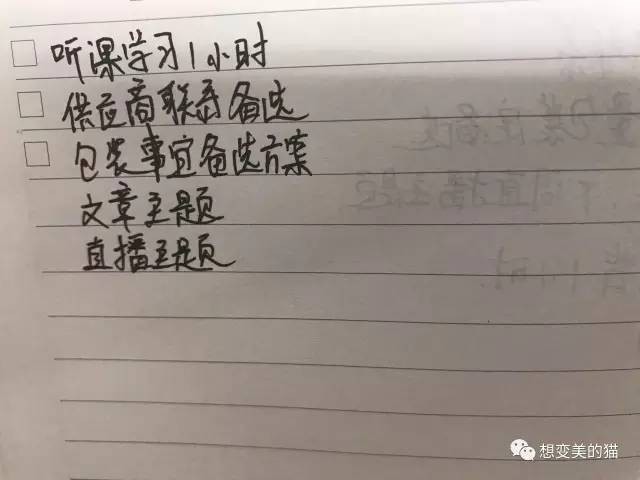 听课学习1小时
供应商联系备选
包装事宜备选方案
文章主题
直播主题
想变美的猫